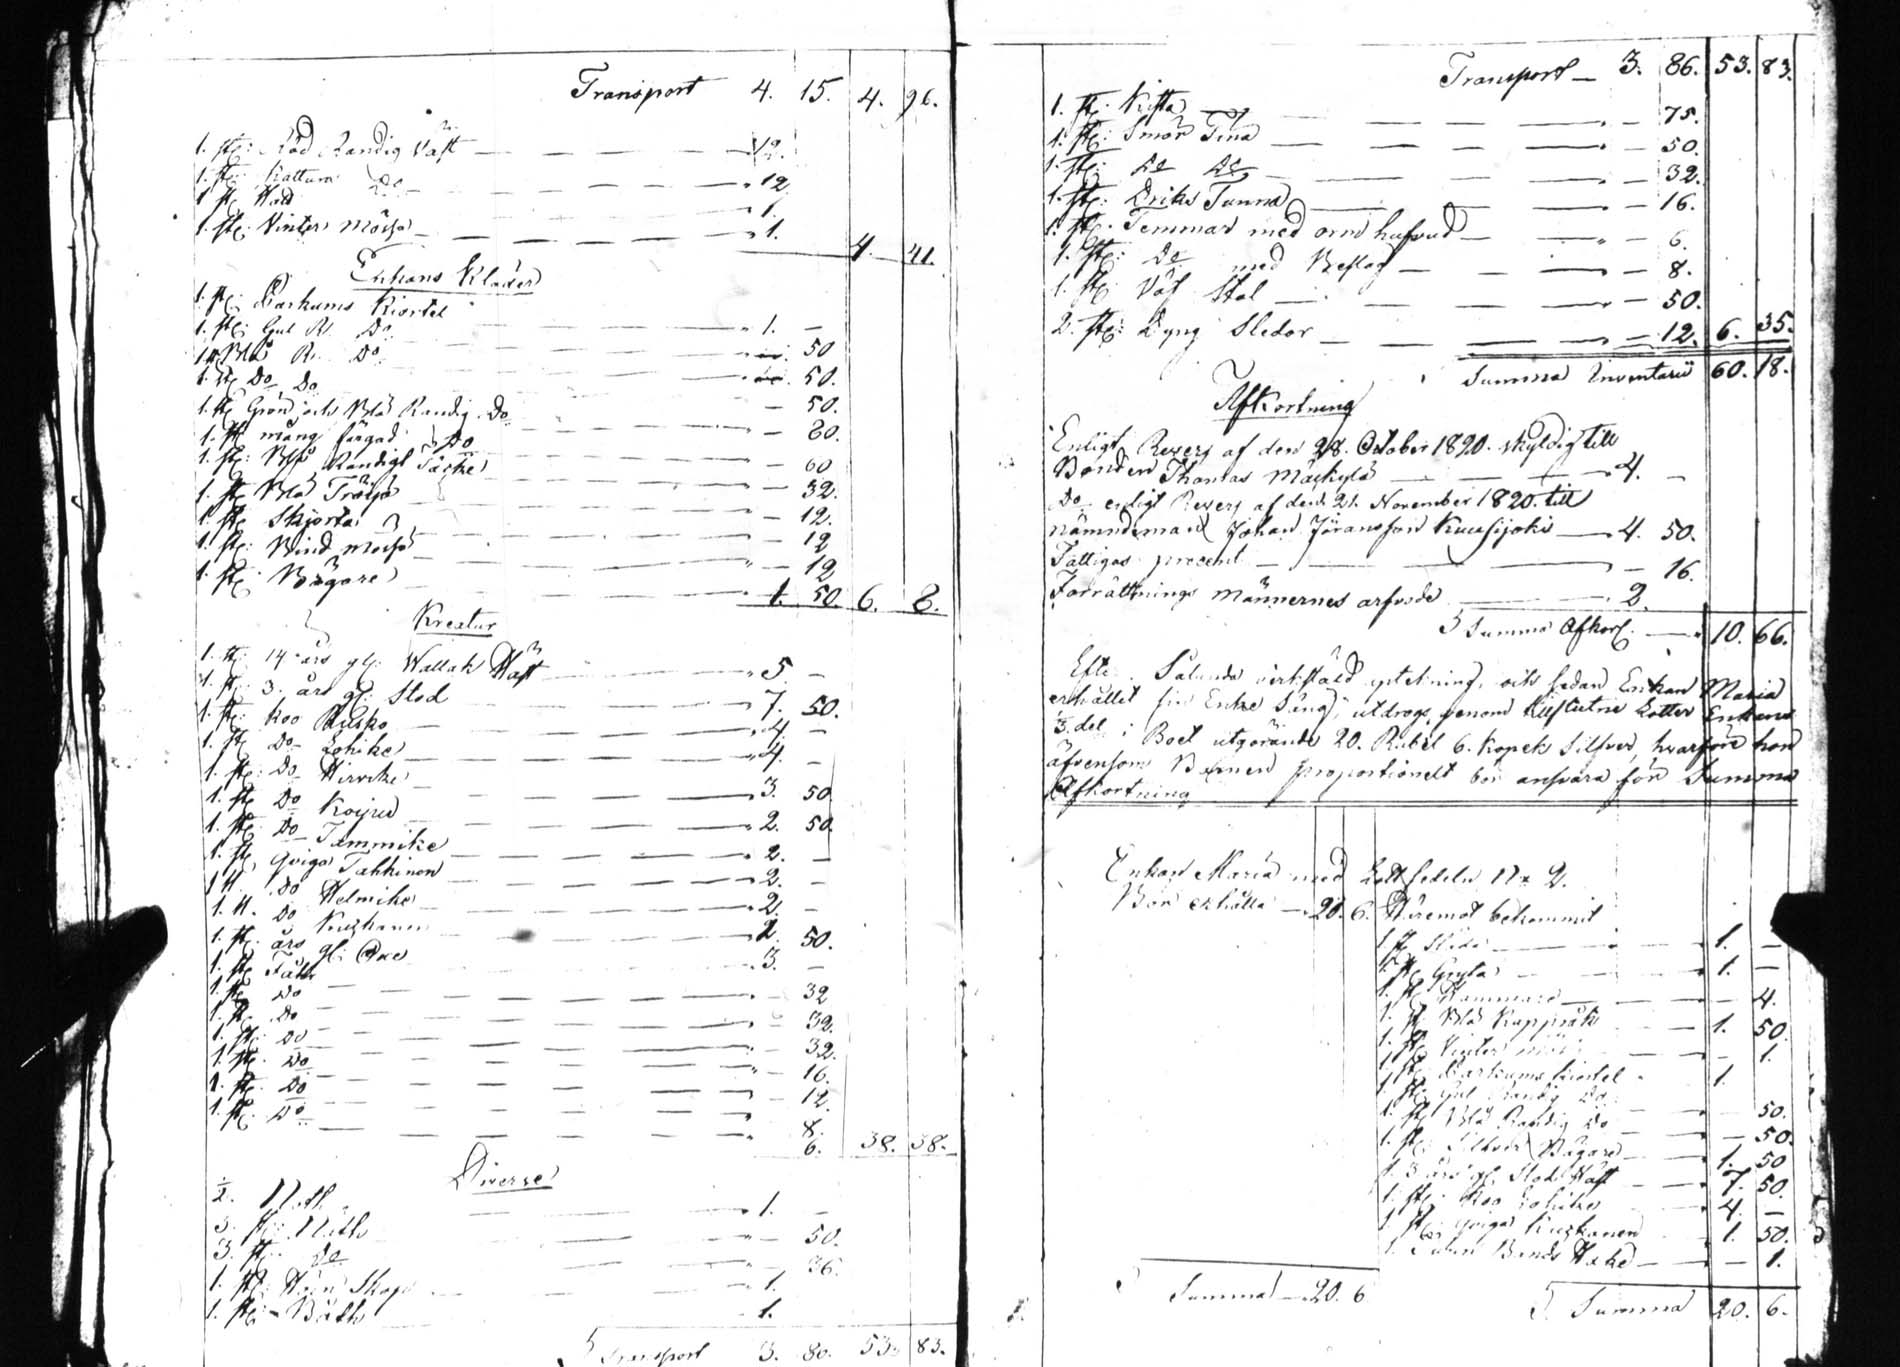 Transport 4. 15. 4. 96.
1. st: Röd Randig Väst 12.
1. st: Kattuns Do 12
1 st: Hatt 1.
1. st: Vinter Mössa 1.
4. 41.
Enkans Kläder
1. st: Barkums Kiortel 1. —
1. st: Gul R. Do 50
1. st Blå R. Do 50.
1. st Do Do 50.
1. st Grön och Blå Randig Do 80.
1. st mång färgad Do 60
1. st: Blå Randigt Täcke 32.
1. st Blå Tröija 12.
1. st: Skjorta 12
1. st: Bind Mössa 12
1. st: Bägare 1. 50. 6. 8.
Kreatur
1. st: 14 års gl: Wallak Häst 5. —
1. st: 3. års gl: Stod 7. 50.
1. st: Koo Rusko 4. —
1. st Do Lohike 4. —
1. st: Do Hirvike 3. 50
1. st Do Koijru 2. 50.
1. st: Do Tammike 2. —
1. st Qviga Tahkinen 2. —
1 st. Do Helmike 2. —
1. st. Do Kuckanen 2. 50.
1. st: års gl: Oxe 3. —
1. st Får 32
1. st Do 32.
1. st. Do 32.
1. st: Do 16.
1. st: Do 12.
1. st: Do 8.
1. st: Do 6. 38. 38.
Diverse
½. Noth 1. —
3. st: Näth 50.
3. st: Do 36.
1. st: Skåp 1.
1. st: Båth 1.
Transport 3. 86. 53. 83.
Transport 3. 86. 53. 83.
1. st: Kista 75.
1. st: Smör Tina 50.
1. st: Do Do 32.
1. st: Driks Tunna 16.
1. st: Temmar med orm hufvud 6.
1. st: Do med Beslag 8.
1. st Väf Stol 50.
2. st: Dyng Sledor 12. 6. 35.
Summa Inventarii 60. 18.
Afkortning
Enligt Revers af den 28. October 1820. skyldig till
Bonden Thomas Mäckylä 4. —
Do enligt Revers af den 21. November 1820. till
nämndeman Johan Jöransson Kuusijoki 4. 50.
Fattigas procent 16.
Förrättnings männernes arfvode 2.
Summa Afkort: 10. 66.
Efter Sålunda verkstäld uptekning, och sedan Enkan Maria
erhållet sin Enke Säng, utdrogs genom slutne Lotter Enkans
⅓. del i Boet utgörande 20. Rubel 6. Kopek Silfver, hvarföre hon
äfvensom Barnen proportionelt bör ansvara för Summa
Afkortning
Enkan Maria med Lott sedeln No 2.
Bör erhålla 20. 6. Häremot bekommit
1 st Släde 1. —
1. st Gryta 1. —
1. st Hammare 4.
1. st Blå Kappråk 1. 50.
1. st: Vinter 1.
1. st: Barkums Kiortel 1.
1. st: Gul Randig Do 50.
1. st Blå Randig Do 50.
1. st: Silfver Bägare 1. 50
1. 3 års gl. Stod Häst 7. 50.
1. st: Koo Lohike 4. —
1. st: Qviga Kuckanen 1. 50.
1. Bands Hake 1.
Summa 20. 6
Summa 20. 6.